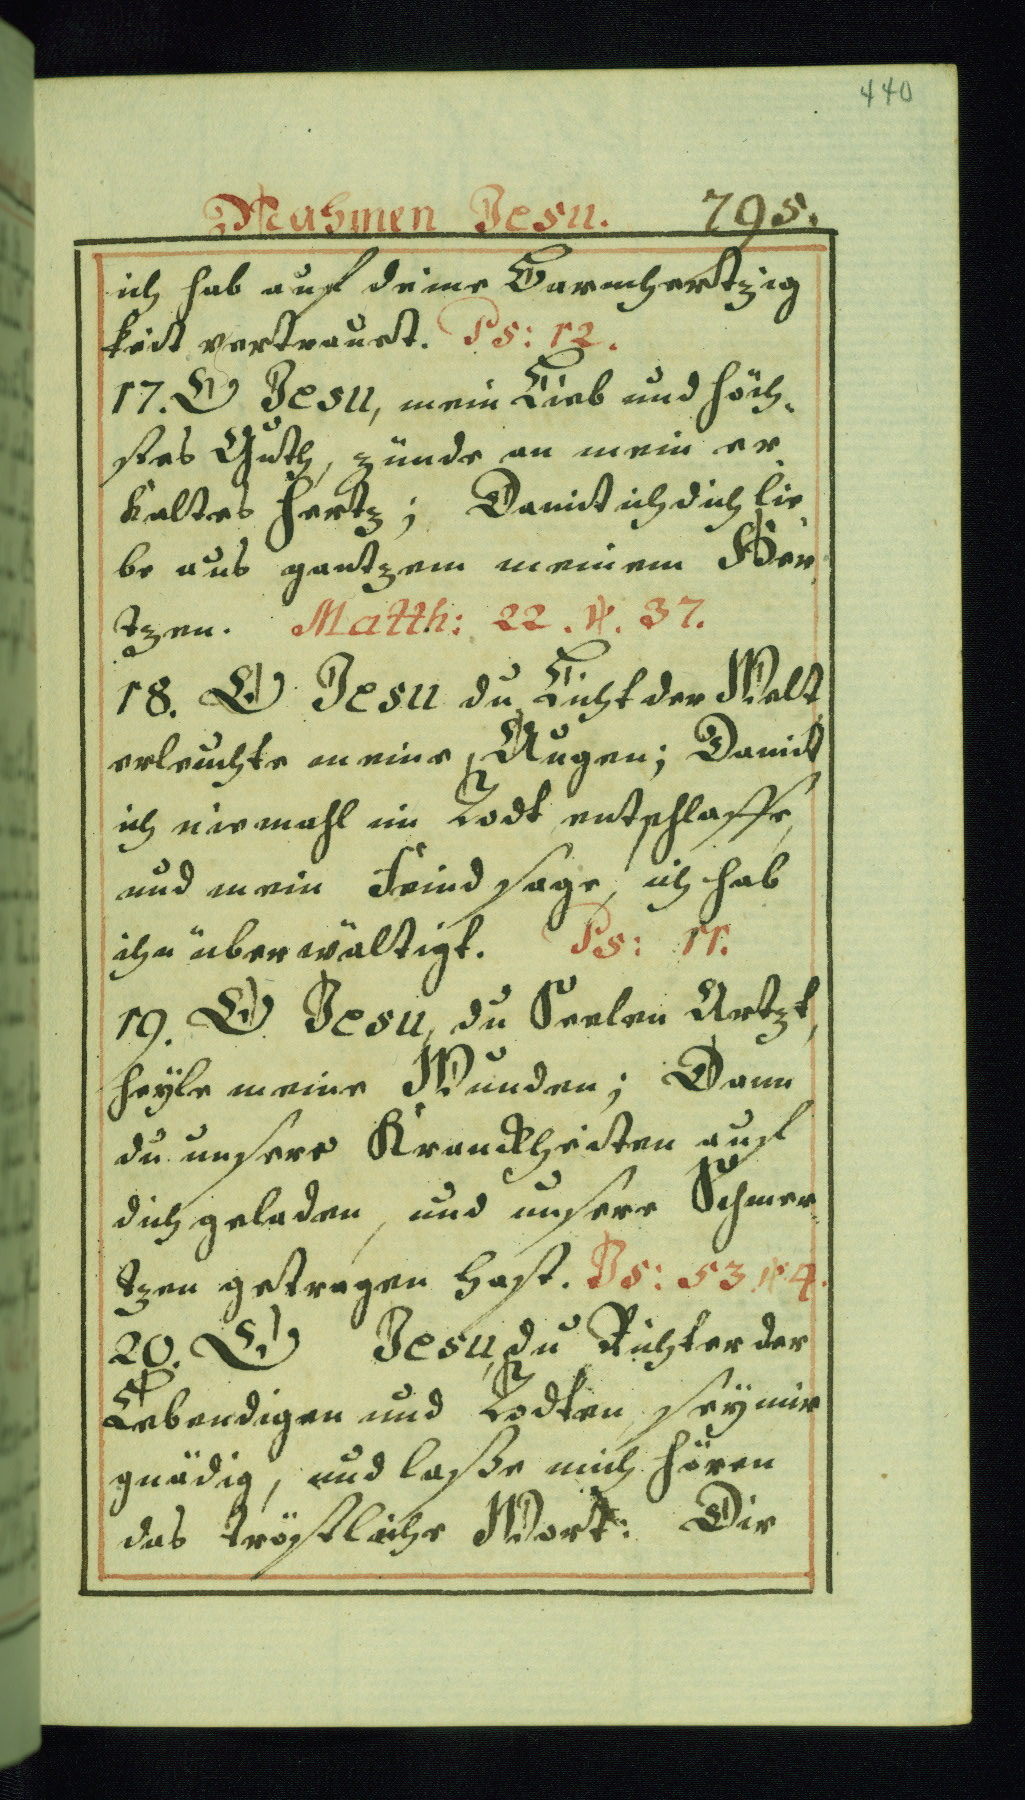 440
Nahmen Jesu. 795.
ich hab auf deine Barmhertzig
keit vertrauet. Ps: 12.
17. O Jesu, mein Lieb und höch-
stes Guth, zünde an mein er
kaltes Hertz; Damit ich dich lie
be aus gantzem meinem Her
tzen. Matth: 22. ℣. 37.
18. O Jesu du Licht der Welt
erleuchte meine Augen; Damit
ich niemahl im Todt entschlaffe,
und mein Feind sage, ich hab
ihn überwältigt. Ps: 11.
19. O Jesu, du Seelen Artzt,
heyle meine Wunden; Dann
du unsere Kranckheiten auf
dich geladen, und unsere Schmer
tzen getragen hast. Is: 53 ℣ 4.
20. O Jesu, du Richter der
Lebendigen und Todten, seÿ mir
gnädig, und laße mich hören
das tröstliche Wort: Dir